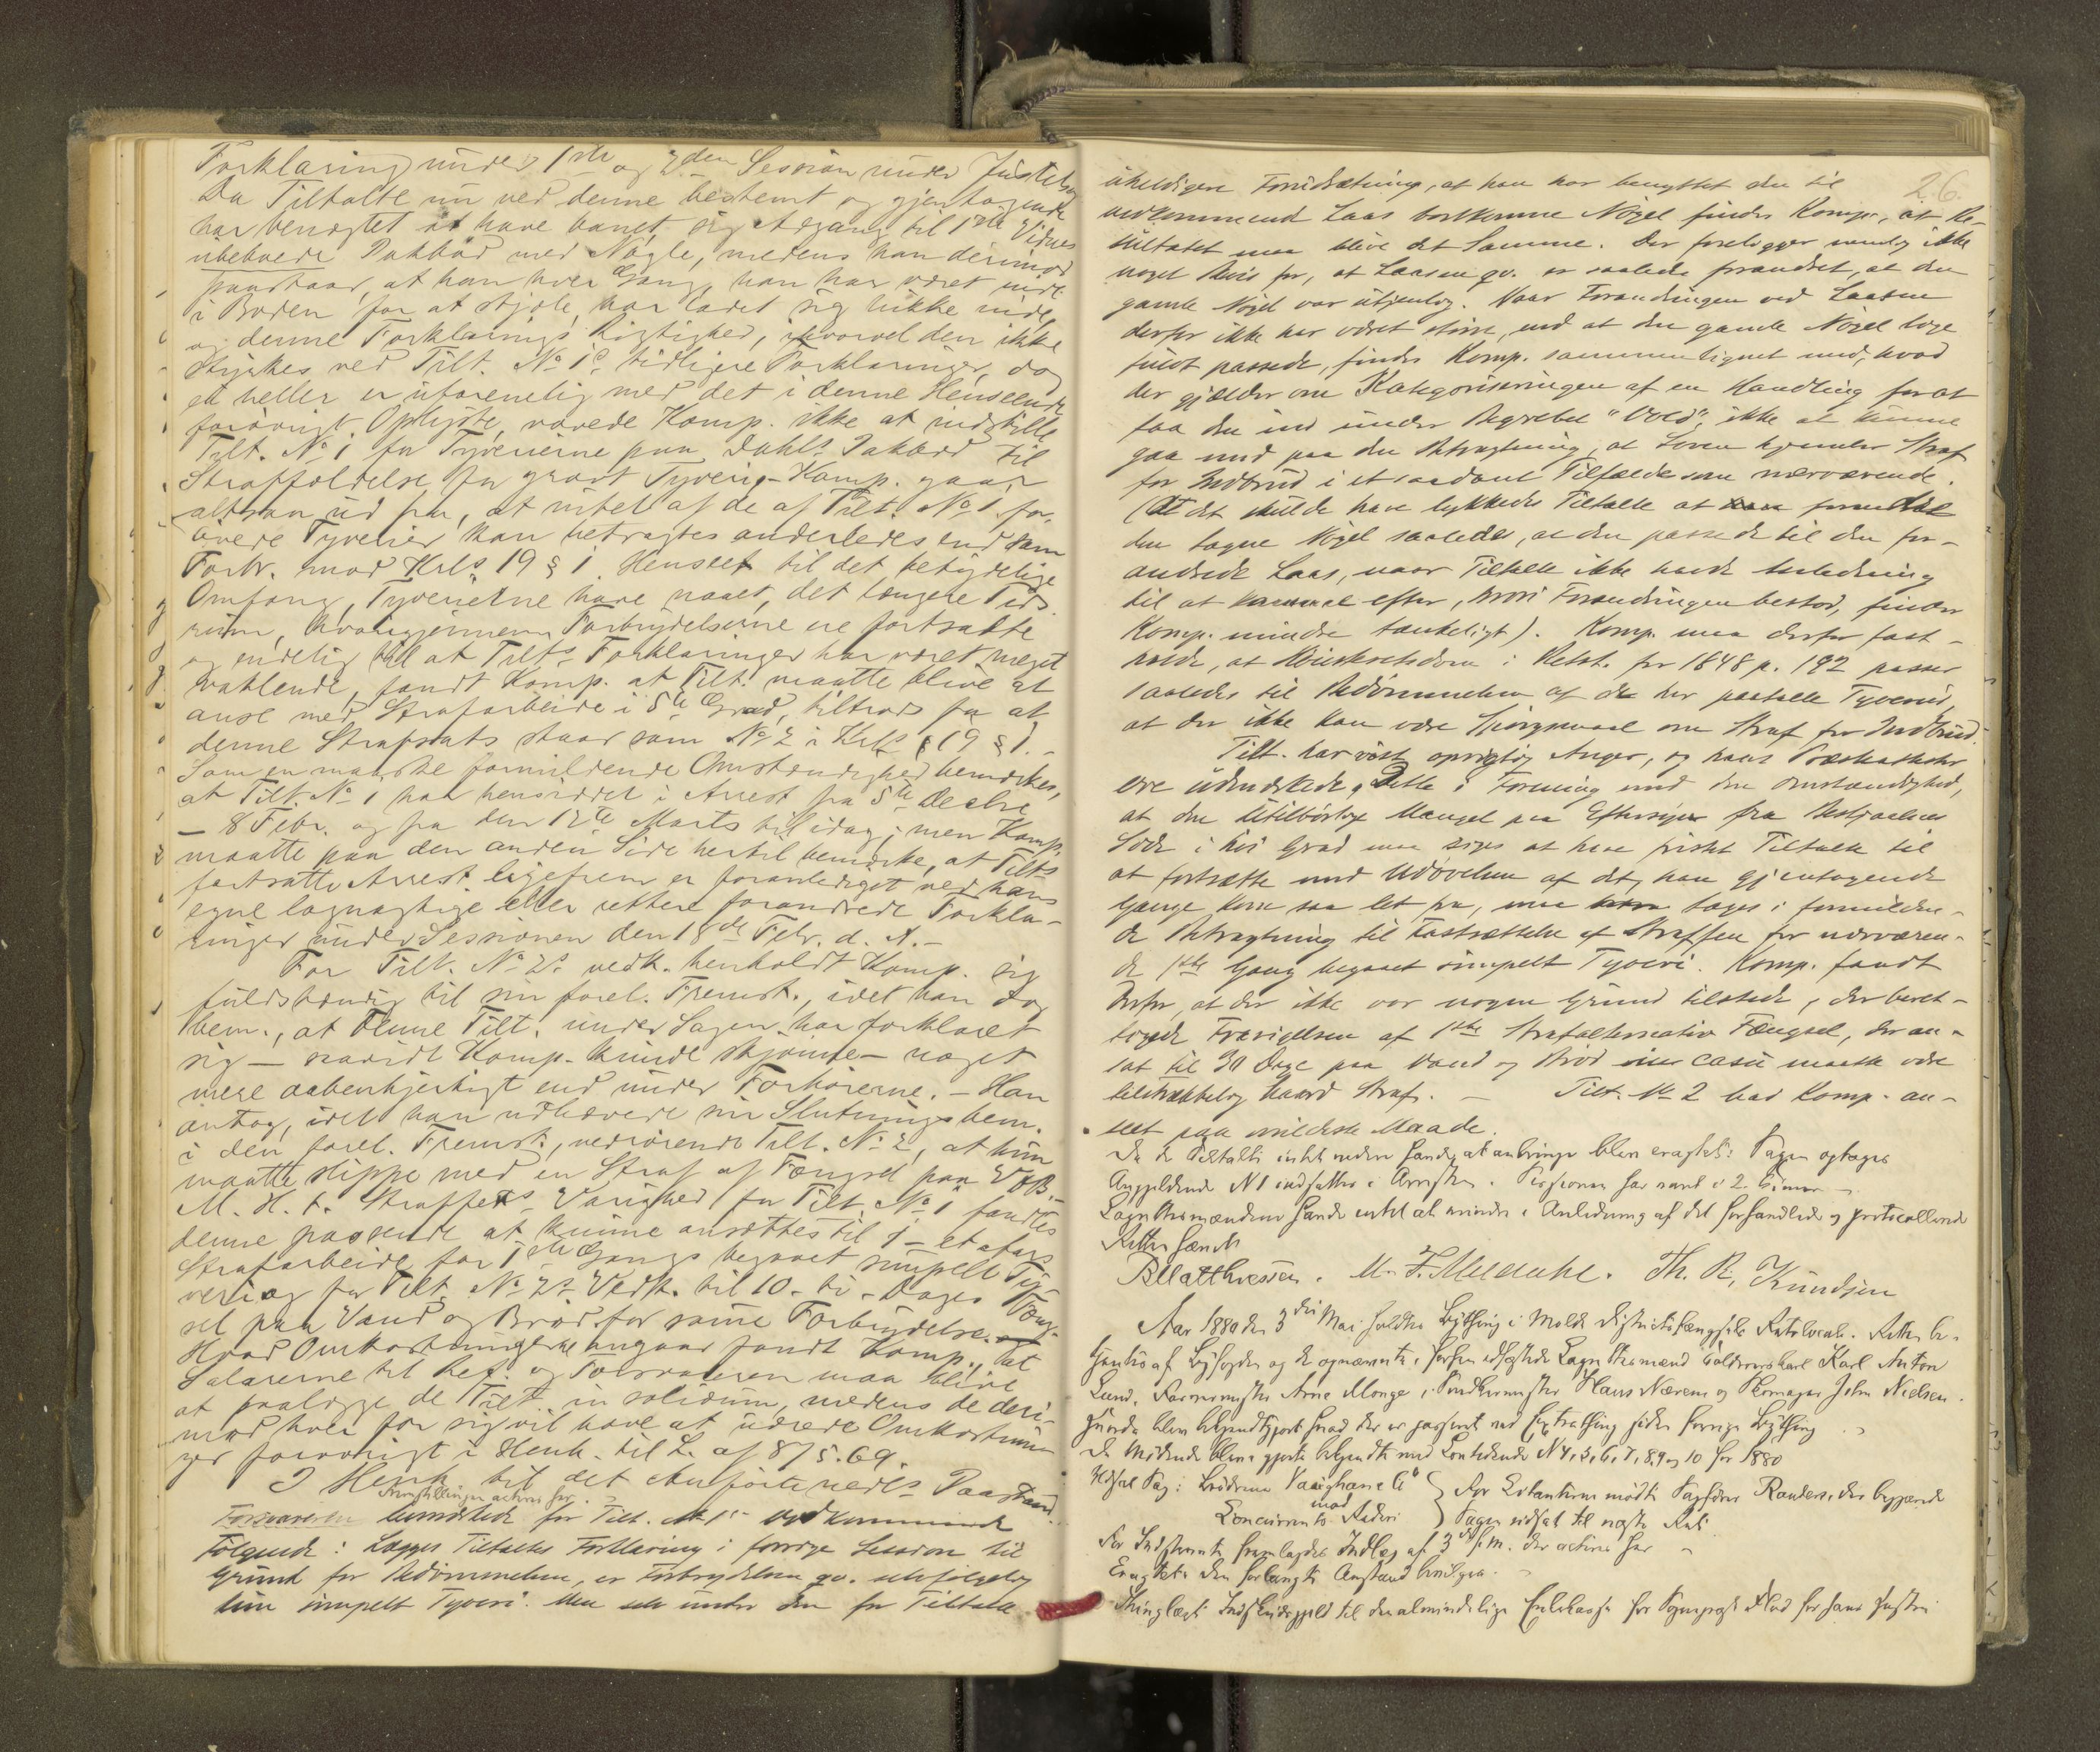 Forklaring under 1ste og 2den Session under Justits
Da Tiltalte nu ved denne bestemt og gjentagende
har benægtet at have banet sig Adgang til 1ste Vidnes
ubeboede Pakbod med Nøgle, medens han derimod
paastaar, at han hver Gang, han har været inde
i Boden for at stjæle, har ladet sig lukke inde,
og denne Forklarings Rigtighed, ihvorvel den ikke
styrkes ved Tilt. No 1s tidligere Forklaringer, dog
ei heller er uforenelig med det i denne Henseende
forøvrigt Oplyste, vovede Komp. ikke at indstille
Tilt. No 1 for Tyverierne paa Dahls Pakbod til
Straffældelse for grovt Tyveri. - Komp. gaar
altsaa ud fra, at intet af de af Tilt. No 1 for-
øvede Tyverier kan betragtes anderledes end som
Forbr. mod Krls 19 § 1. Henseet til det betydelige
Omfang, Tyverierne have naaet, det længere Tids-
rum, hvorigjennem Forbrydelserne ere fortsatte
og endelig til at Tilts Forklaringer har været meget
vaklende, fandt Komp. at Tilt. maatte blive at
anse med Strafarbeide i 5te Grad, tiltrods for at
denne Strafsats staar som No 2 i Krls 19 § 1. -
Som en maaske formildende Omstændighed bemærkes,
at Tilt. No 1 har hensiddet i Arrest fra 5te Decbr
- 8 Febr. og fra den 12te Marts til idag; men Komp.
maatte paa den anden Side hertil bemærke, at Tilts
fortsatte Arrest ligefrem er foranlediget ved hans
egne løgnagtige eller rettere forandrede Forkla-
ringer under Sessionen den 18de Febr. d. A. -
For Tilt. No 2s Vedk. henholdt Komp. sig
fuldstændig til sin forel. Fremst., idet han dog
bem., at denne Tilt. under Sagen har forklaret
sig - saavidt Komp. kunde skjønne - noget
mere aabenhjertigt end under Forhørerne. - Han
antog, idet han udhævede sin Slutningsbem.
i den forel. Fremst., vedrørende Tilt. No 2, at hun
maatte slippe med en Straf af Fængsel paa V & B. -
M. H. t. Straffens Varighed for Tilt. No 1 fandtes
denne passende at kunne ansættes til 1 - et Aars
Strafarbeide for 1ste Gangs begaaet simpelt Ty-
veri og for Tilt. No 2s Vedk. til 10 - ti - Dages Fæng-
sel paa Vand og Brød for samme Forbrydelse.
Hvad Omkostningerne angaar fandt Komp., at
Salarerne til Ref. og Forsvareren maa blive
at paalægge de Tilt. in solidum, medens de deri-
mod hver for sig vil have at udrede Omkostnin-
ger forøvrigt i Henh. til L. af 8/5. 69.
I Henh. til det Anførte nedls Paastand.
Fremstillingen actoris for
Forsvareren bemærkede for Tilt. No 1s Vedkommende
Følgende: Lægges Tiltaltes Forklaring i forrige Session til
Grund for Bedømmelsen, er Forbrydelsen qv. selvfølgelig
kun simpelt Tyveri. Men selv under den for Tiltalte
26.
uheldigere Forudsætning, at han har benyttet den til
vedkommende Laas bortkomne Nøgel finder Komp., at Re-
sultatet maa blive det Samme. Der foreligger nemlig ikke
noget Bevis for, at Laasen qv. er saaledes forandret, at den
gamle Nøgel var utjenlig. Naar Forandringen ved Laasen
derfor ikke har været større, end at den gamle Nøgel lige
fuldt passede, finder Komp. sammenlignet med, hvad
der gjælder om Kategoriseringen af en Handling for at
faa den ind under Begrebet "Vold", ikke at kunne
gaa med paa den Betragtning, at Loven hjemler Straf
for Indbrud i et saadant Tilfælde som nærværende.
(At det skulde have lykkedes Tiltalte at forandre
den tagne Nøgel saaledes, at den passede til den for-
andrede Laas, naar Tiltalte ikke havde Anledning
til at efter, hvori Forandringen bestod, finder
Komp. mindre tænkeligt). Komp. maa derfor fast-
holde, at Høiesteretsdom i Retst. for 1848 p. 192 passer
saaledes til Bedømmelsen af de her paatalte Tyverier,
at der ikke kan være Spørgsmaal om Straf for Indbrud.
Tilt. har vist oprigtig Anger, og hans
ere udmærkede. Dette i Forening med den Omstændighed,
at den utilbørlige Mangel paa Eftersyn fra Bestjaalnes
Side i høi Grad maa siges at have fristet Tiltalte til
at fortsætte med Udøvelsen af det, han gjentagende
Gange kom saa let fra, maa tages i formilden-
de Betragtning til Fastsættelse af Straffen for nærværen-
de 1ste Gang begaaet simpelt Tyveri. Komp. fandt
derfor, at der ikke var nogen Grund tilstede, der beret-
tigede Fravigelsen af 1ste Strafalternativ Fængsel, der an-
sat til 30 Dage paa Vand og Brød in casu maatte være
tilstrækkelig haard Straf. - Tilt. No 2 bad Komp. an-
seet paa mildeste Maade.
Da de Tiltalte intet videre havde at anbringe blev eragtet: Sagen optages
Angjældende N 1 indsættes i Arresten. Sessionen har varet i 2 Timer -
Lagrettesmændene havde intet at erindre i Anledning af det forhandlede og protocollerede
Retten hævet
B Matthiessen. M. F. Meldahl. Th. R. Knudsen
Aar 1880 den 3die Mai holdtes Bything i Molde Distriktsfængsels Retslocale. Retten be-
tjentes af Byfogden og de opnævnte, forhen edfæstede Lagrettesmænd Karl Anton
Lund, Farvermester Arne Monge, Hans Nærem og Skomager John Nielsen.
Hvorda blev bekjendtgjort hvad der er passeret ved Extrathing siden forrige Bything
De Mødende blev gjorte bekjendte med Lovtidende N 4, 5, 6, 7, 8, 9 og 10 for 1880
Udsat Sag: Brødrene Co
mod
For Citantinen mødte Sagfører Randers, der begjærede
Sagen udsat til næste Ret.
For Indstevnte fremlagdes Indlæg af 3 d. m. der acteres her
Eragtet: den forlangte Anstand bevilges.
Thinglæst